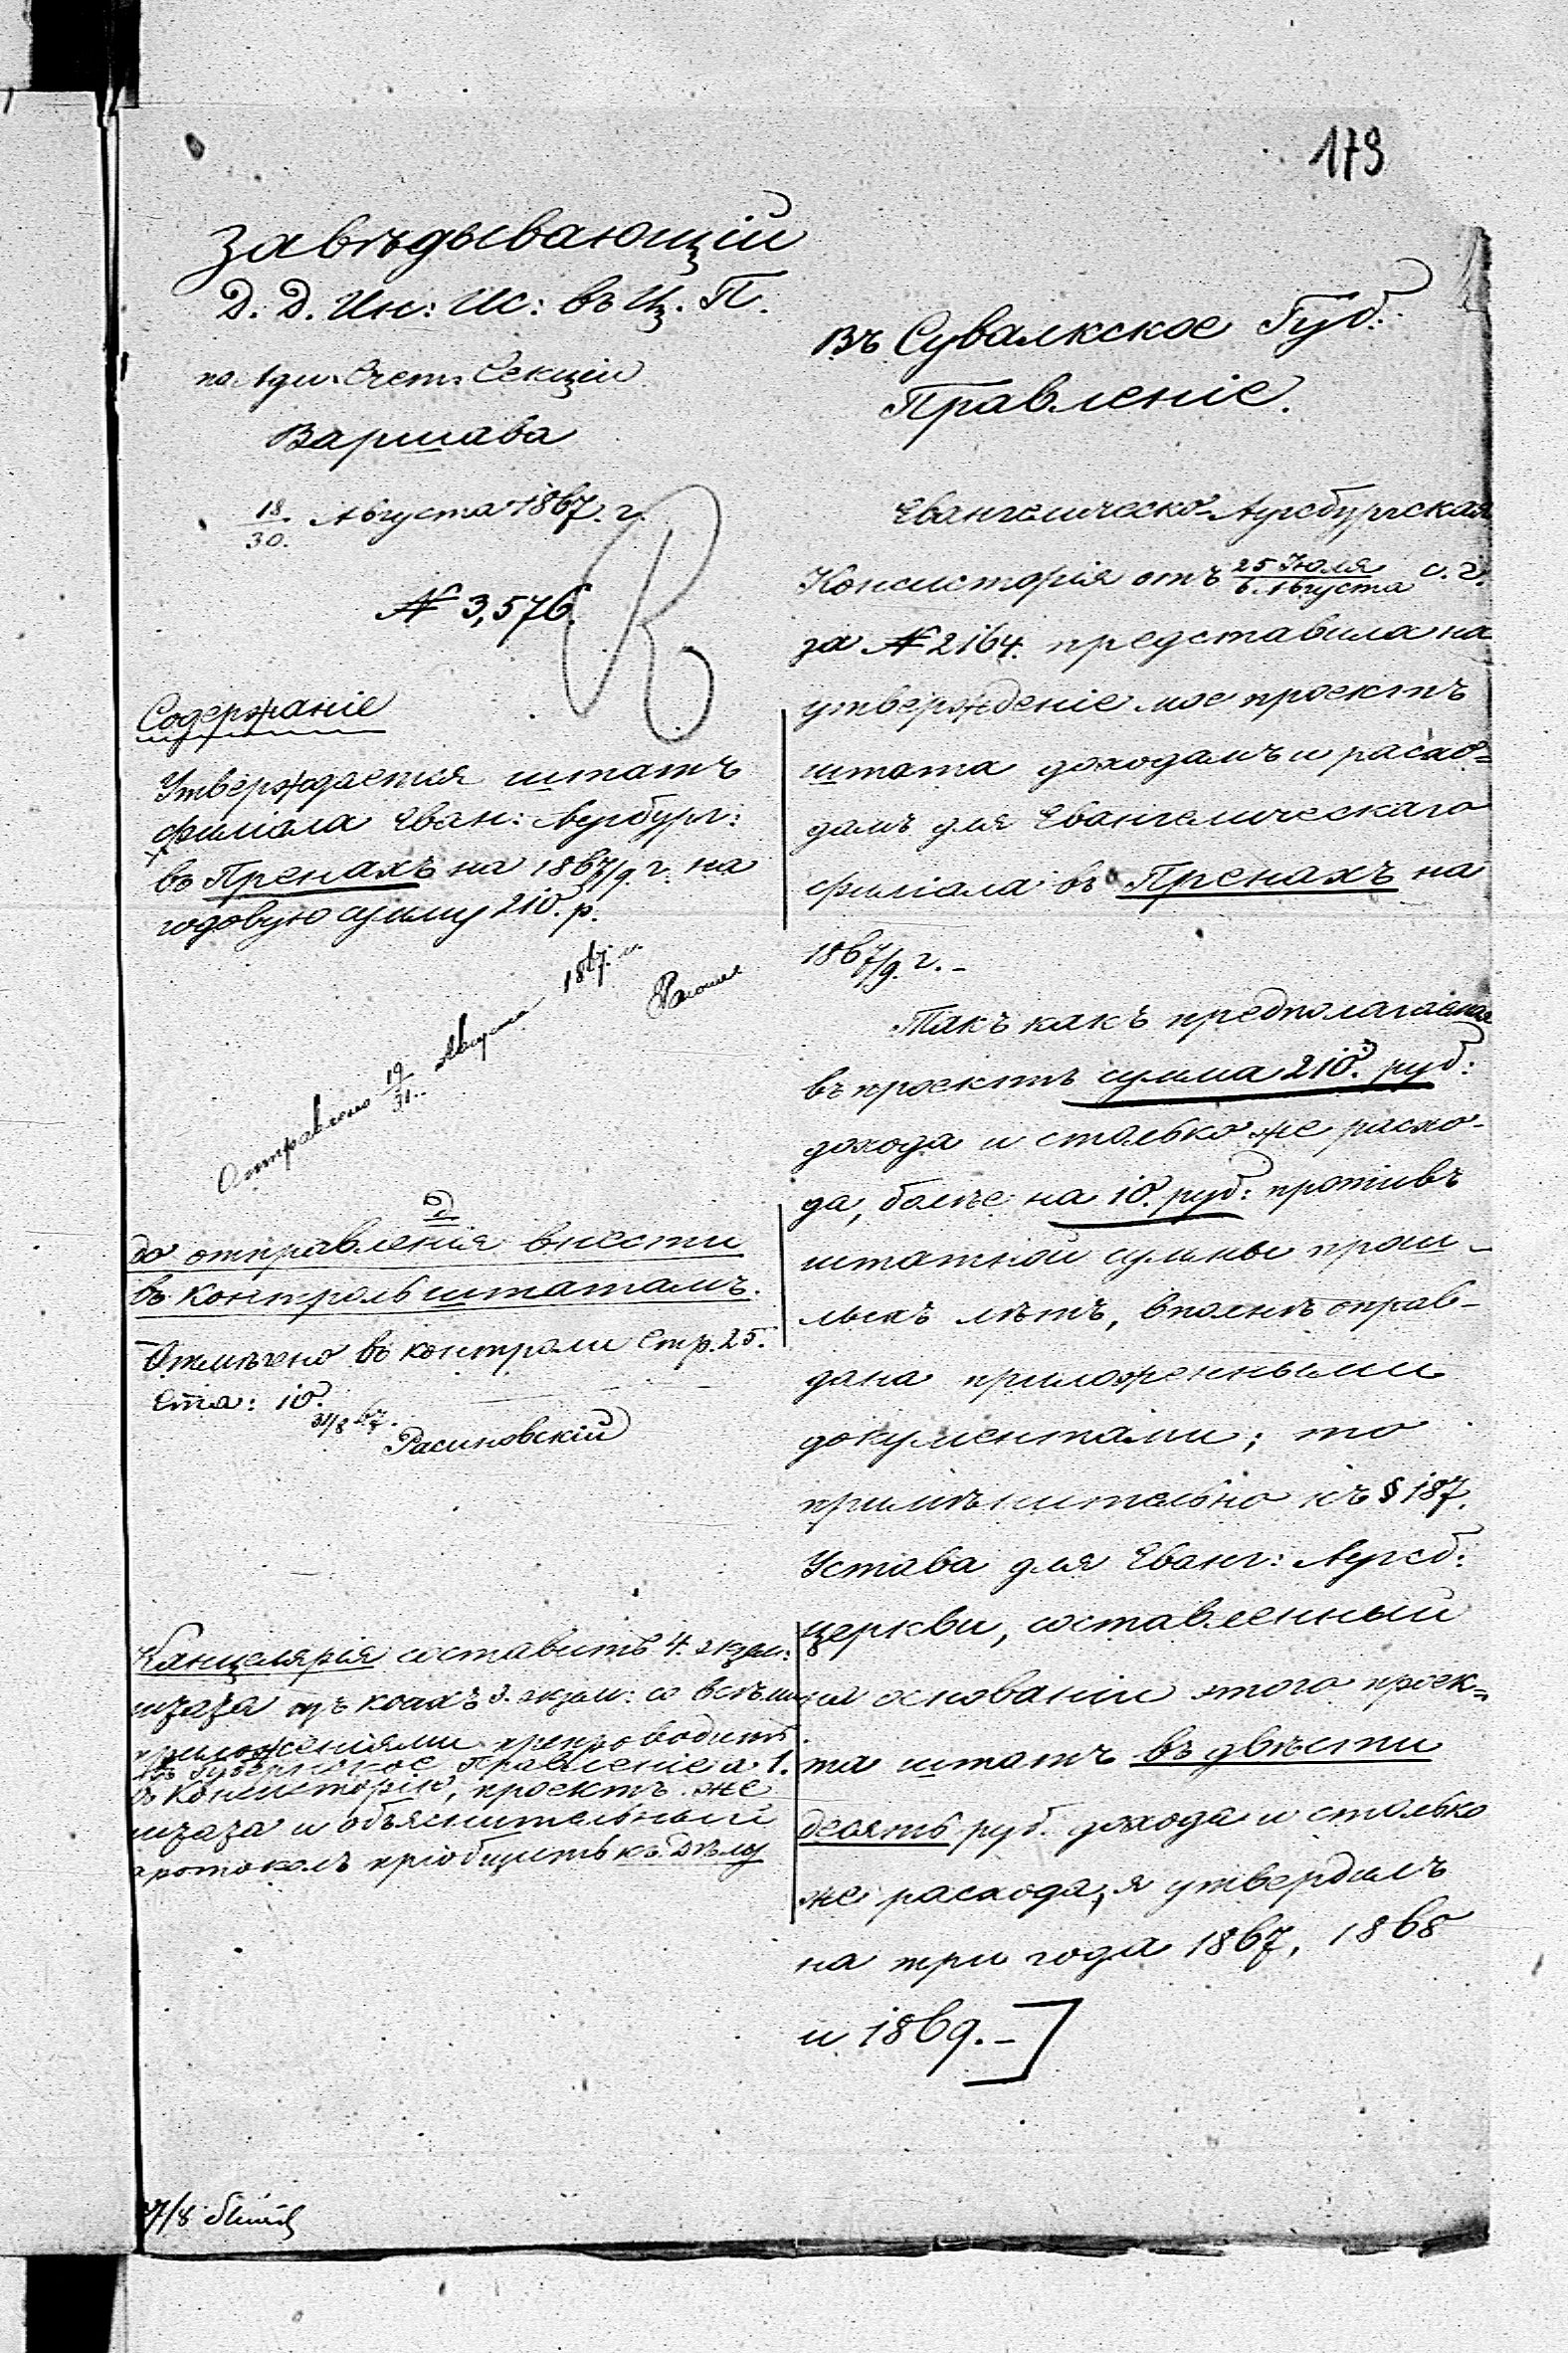 179
Завѣдывающій
Д. Д. Ин: Ис: въ Ц. П.
по Адм. Счет. Секціи
Варшава
18/30. Августа 1867. г.
№ 3,576.
Содержаніе
Утверждается штатъ
филіала Еван: Аугсбург:
въ Пренахъ на 1867/9. г. на
годовую сумму 210. р.
Отправлено 19/31. Августа 1867. г.
До отправленія внести
въ контроль штатамъ.
Отмѣчено въ контроли Стр. 25.
Ста: 10.
31/8 67.
Расиновскій
Канцелярія составитъ 4. экзем:
штата изъ коихъ 3. экзем: со всѣми
приложеніями препроводитъ
въ Губернское Правленіе а 1.
въ Консисторію, проектъ же
штата и объяснительный
протоколъ пріобщить къ дѣлу
7/8
Въ Сувалкское Губ:
Правленіе.
Евангелическо-Аугсбургская
Консисторія отъ 25 Іюля/6. Августа с. г.
за № 2164. представила на
утвержденіе мое проектъ
штата доходамъ и расхо=
дамъ для Евангелическаго
филіала въ Пренахъ на
1867/9. г. -
Такъ какъ предполагаемая
въ проектѣ сумма 210. руб:
дохода и столько же расхо-
да, болѣе на 10. руб: противъ
штатной суммы прош-
лыхъ лѣтъ, вполнѣ оправ-
дана приложенными
документами; то
примѣнительно къ § 187.
Устава для Еванг: Аугсб:
церкви, составленный
на основаніи этого проек=
та штатъ въ двѣсти
десять руб. дохода и столько
же расхода, я утвердилъ
на три года 1867, 1868
и 1869. -]